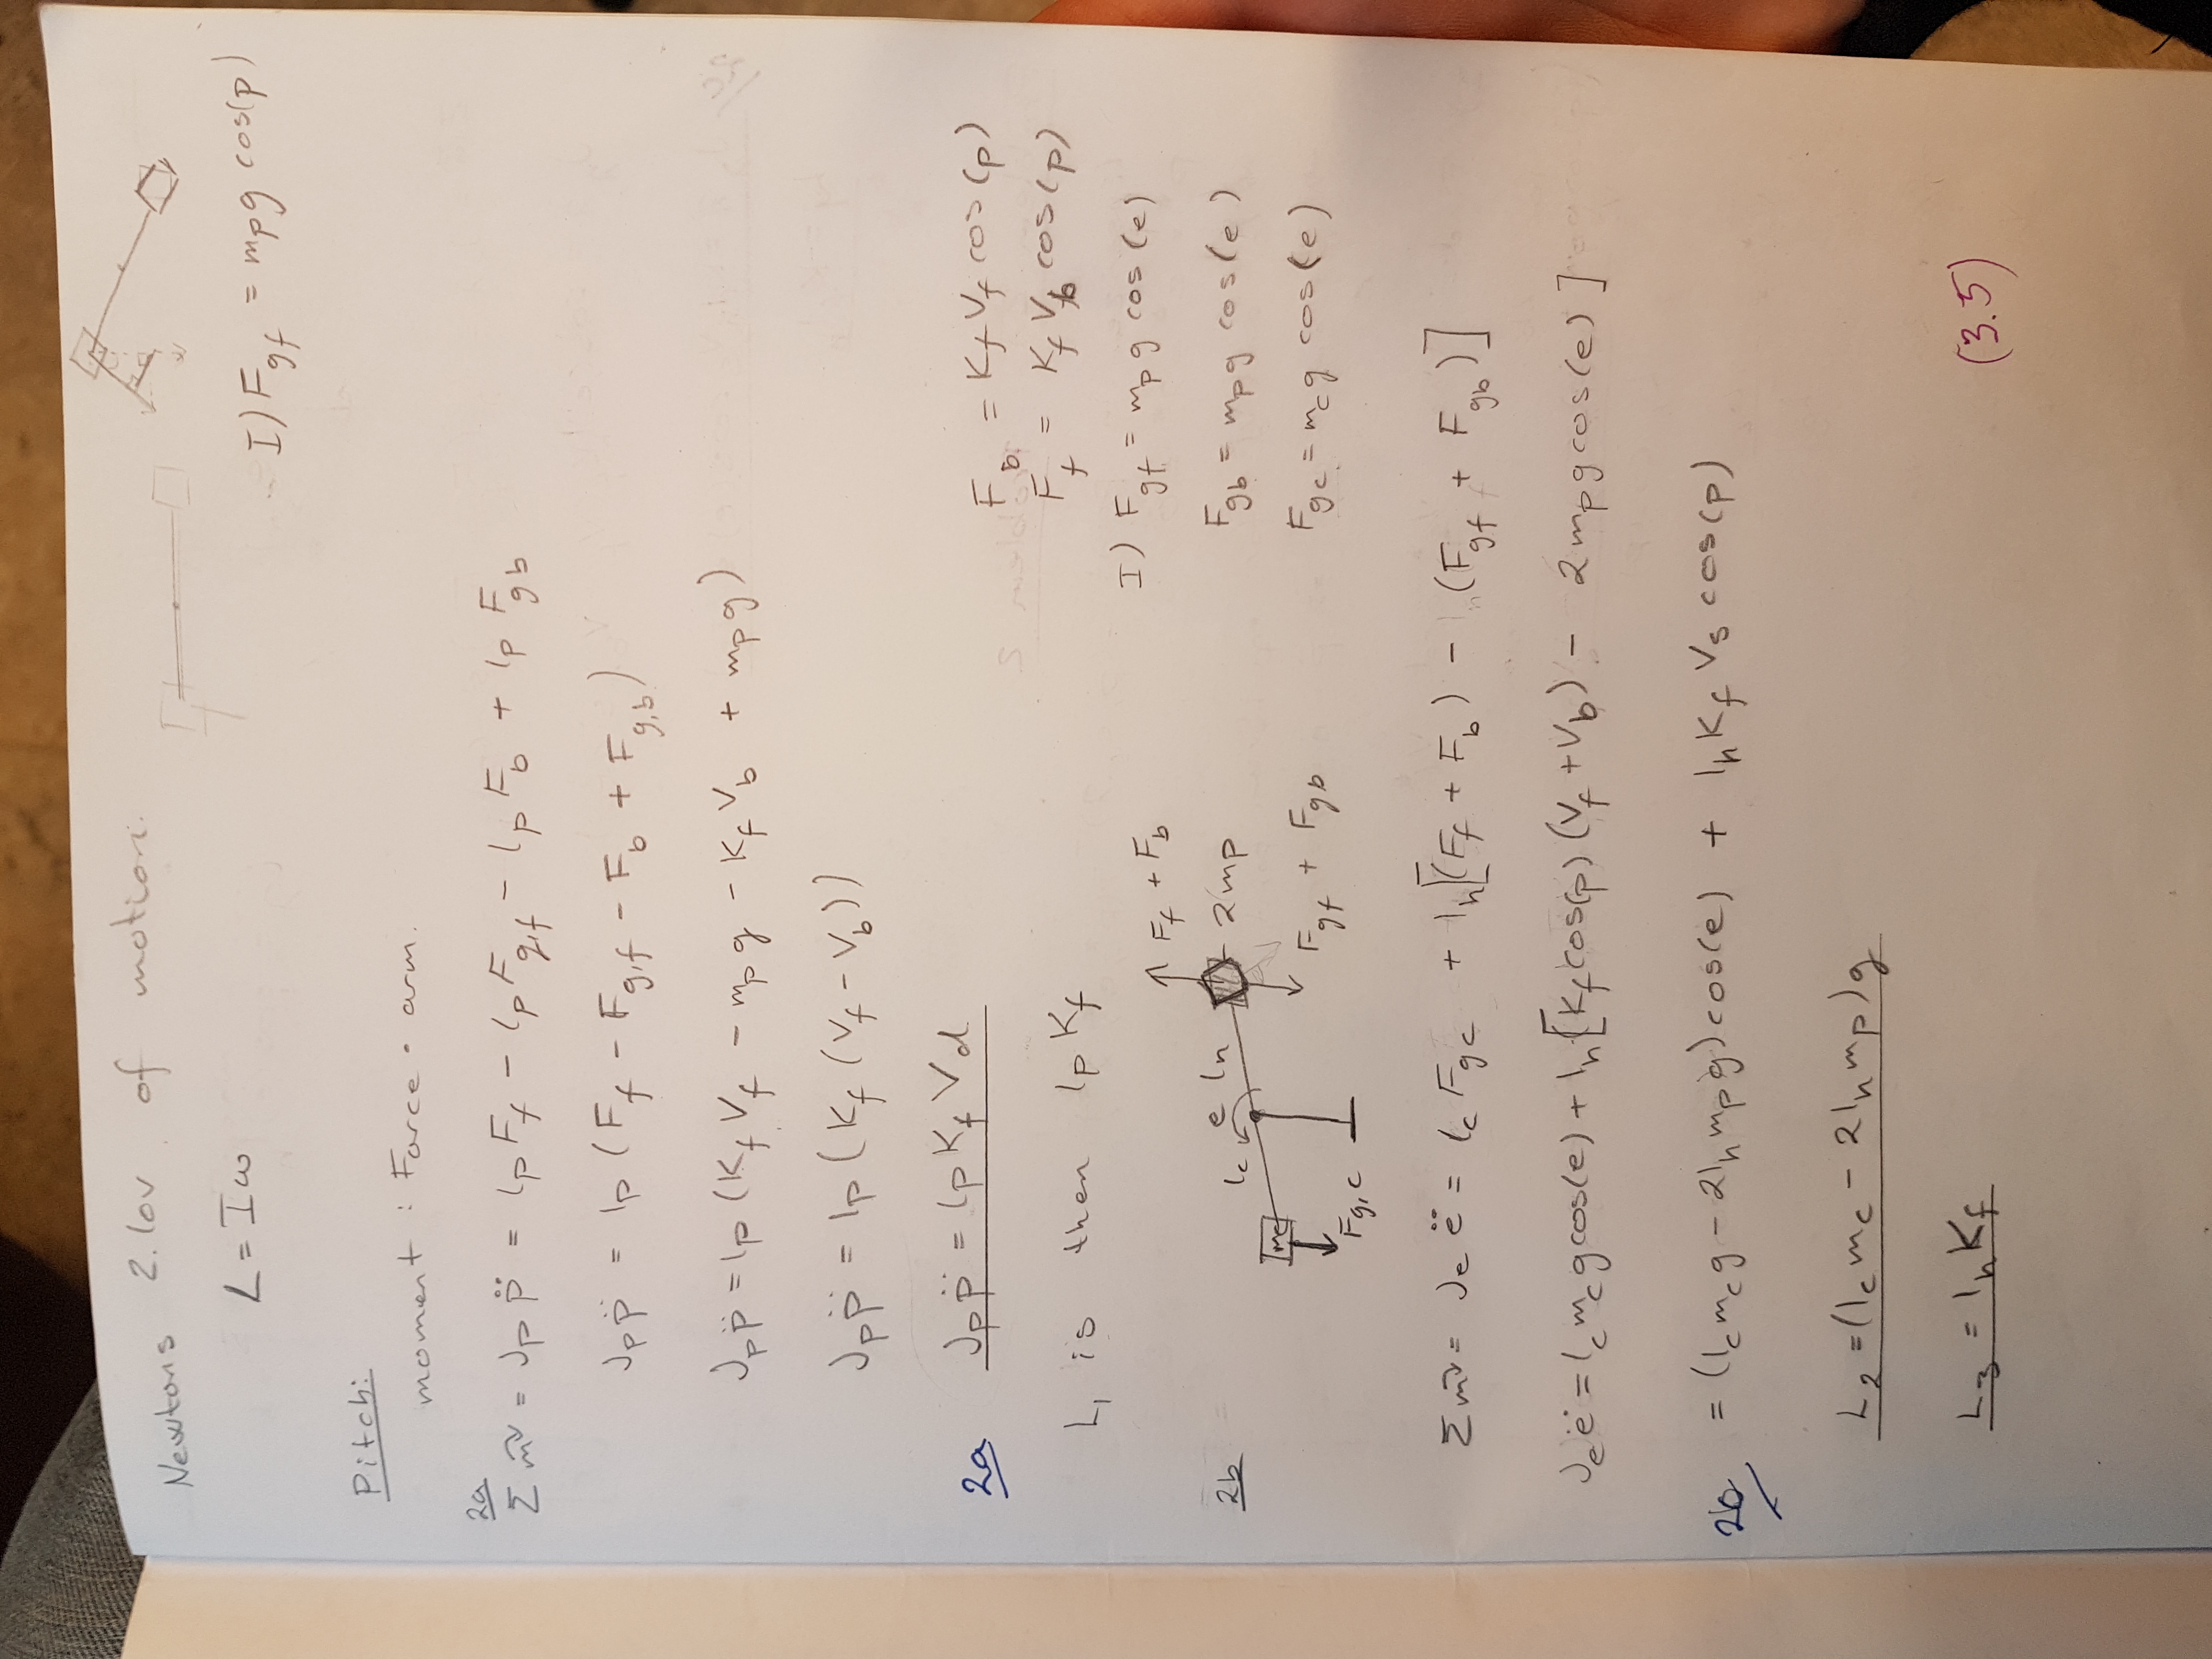 Newtons 2. lov of motion.
L = Iω
I) F_gf = m_p g cos(p)
Pitch:
moment : Force · arm.
2a
Σ m = J_p p̈ = l_p F_f - l_p F_g,f - l_p F_b + l_p F_gb
J_p p̈ = l_p (F_f - F_g,f - F_b + F_g,b)
J_p p̈ = l_p (K_f V_f - m_p g - K_f V_b + m_p g)
J_p p̈ = l_p (K_f (V_f - V_b))
2a J_p p̈ = l_p K_f V_d
L_1 is then l_p K_f
F_b = K_f V_f cos(p)
F_f = K_f V_b cos(p)
I) F_gf = m_p g cos(e)
F_gb = m_p g cos(e)
F_gc = m_c g cos(e)
2b
F_f + F_b
l_c e l_h 2m_p
m_c
F_gf + F_gb
F_g,c
Σ m = J_e ë = l_c F_gc + l_h[(F_f + F_b) - (F_gf + F_gb)]
J_e ë = l_c m_c g cos(e) + l_h[K_f cos(p) (V_f + V_b) - 2m_p g cos(e)]
2b = (l_c m_c g - 2l_h m_p g) cos(e) + l_h K_f V_s cos(p)
L_2 = (l_c m_c - 2l_h m_p)g
L_3 = l_h K_f
(3.5)